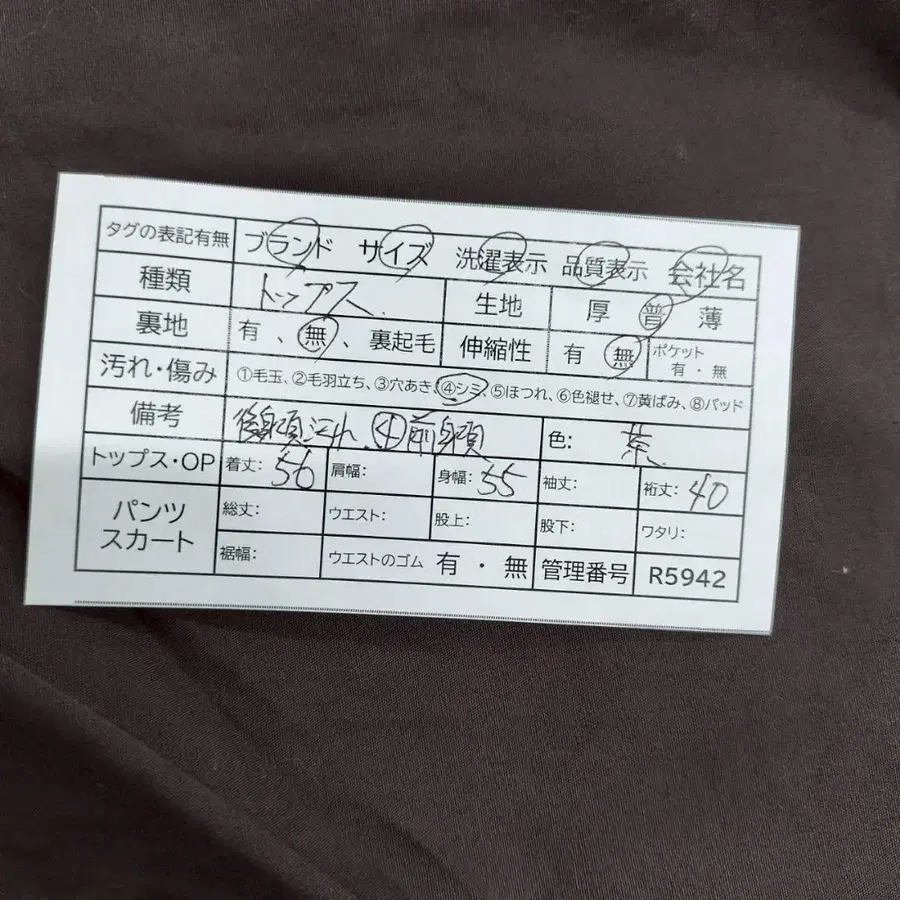 タグの表記有無 ブランド サイズ 洗濯表示 品質表示 会社名
種類 トップス 生地 厚 普 薄
裏地 有 、無 、裏起毛 伸縮性 有 無 ポケット 有・無
汚れ・傷み ①毛玉、②毛羽立ち、③穴あき、④シミ、⑤ほつれ、⑥色褪せ、⑦黄ばみ、⑧パッド
備考 後身頃汚れ、④前身頃 色: 茶
トップス・OP 着丈: 56 肩幅: 身幅: 55 袖丈: 裄丈: 40
パンツ スカート 総丈: ウエスト: 股上: 股下: ワタリ:
裾幅: ウエストのゴム 有・無 管理番号 R5942